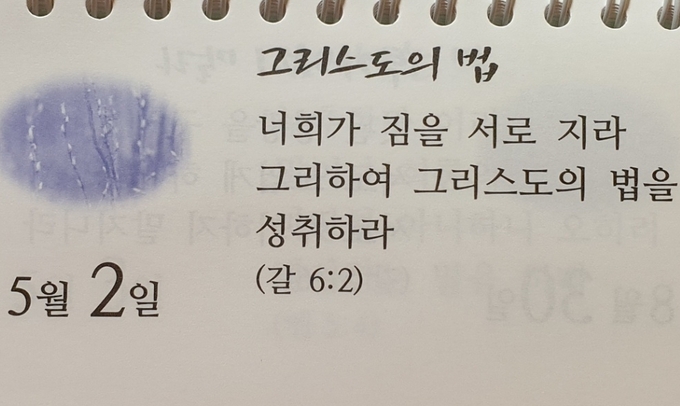 그리스도의 법
너희가 짐을 서로 지라
그리하여 그리스도의 법을
성취하라
(갈 6:2)
5월 2일
8월 30일